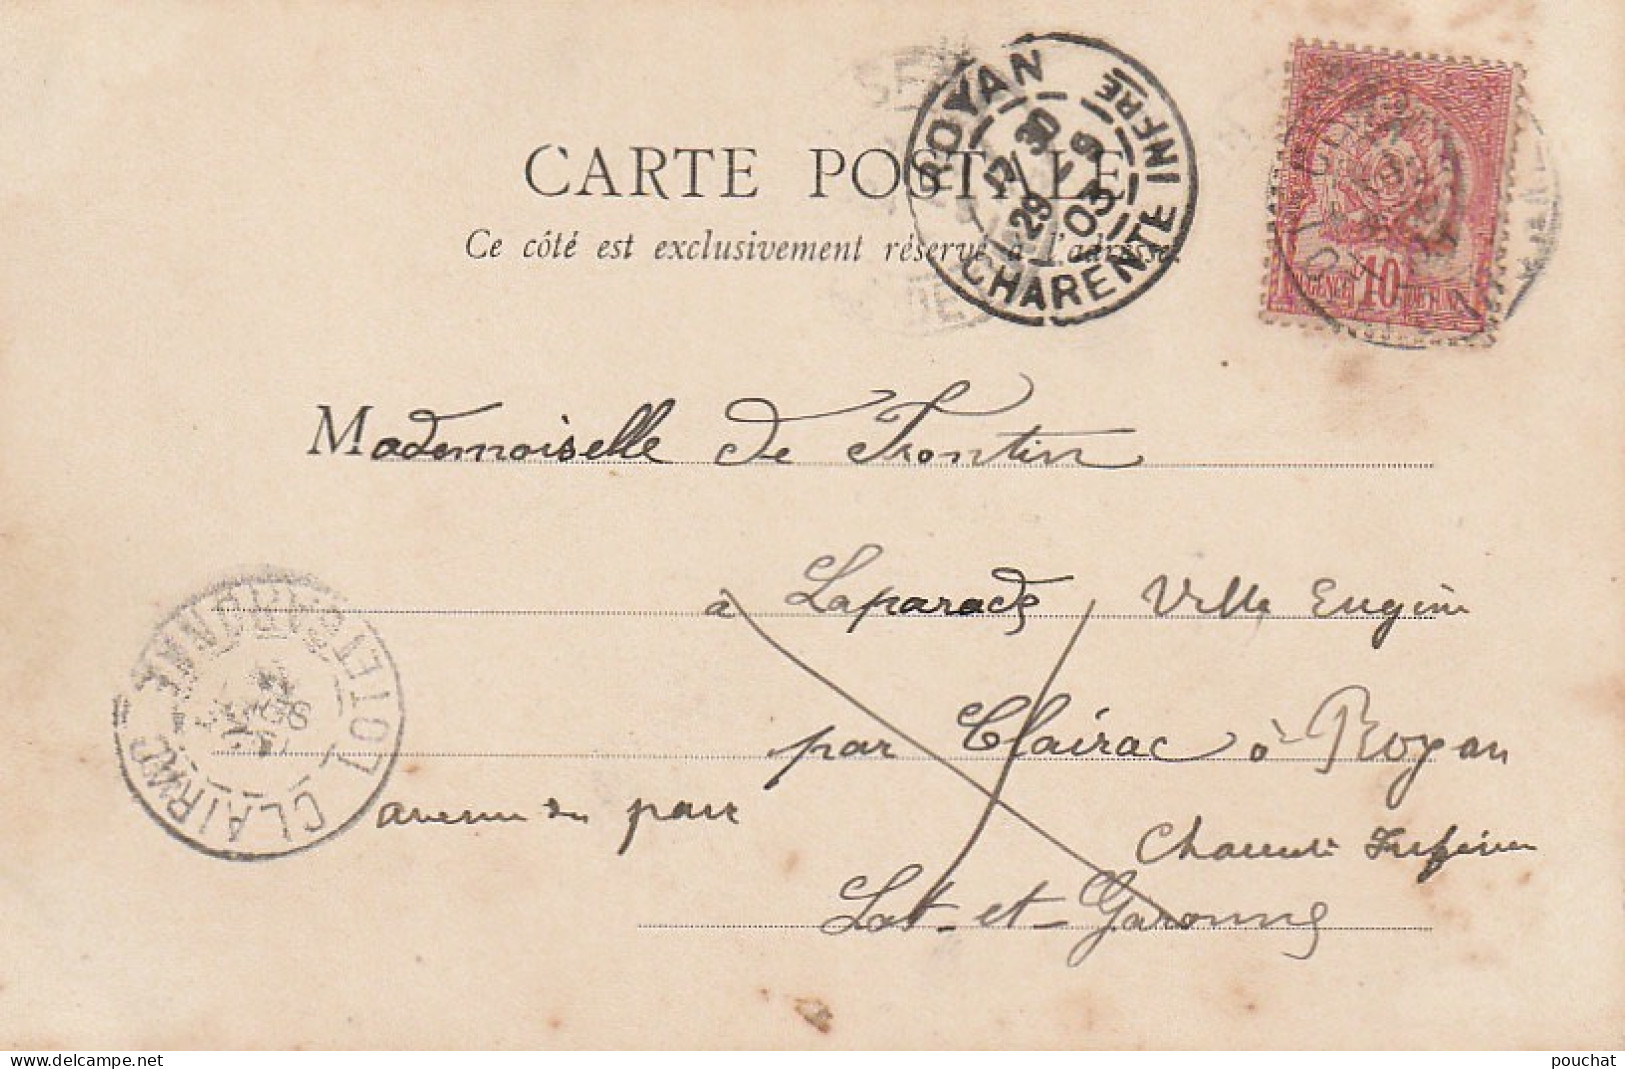 CARTE POSTALE
Ce côté est exclusivement réservé à l'adresse
ROYAN
CHARENTE INFRE
12 30
29 9
03
10
Mademoiselle de Frontin
à Laparade Villa Eugénie
par Clairac à Royan
avenue du parc
Charente Inférieure
Lot-et-Garonne
CLAIRAC
LOT ET GARONNE
pouchat